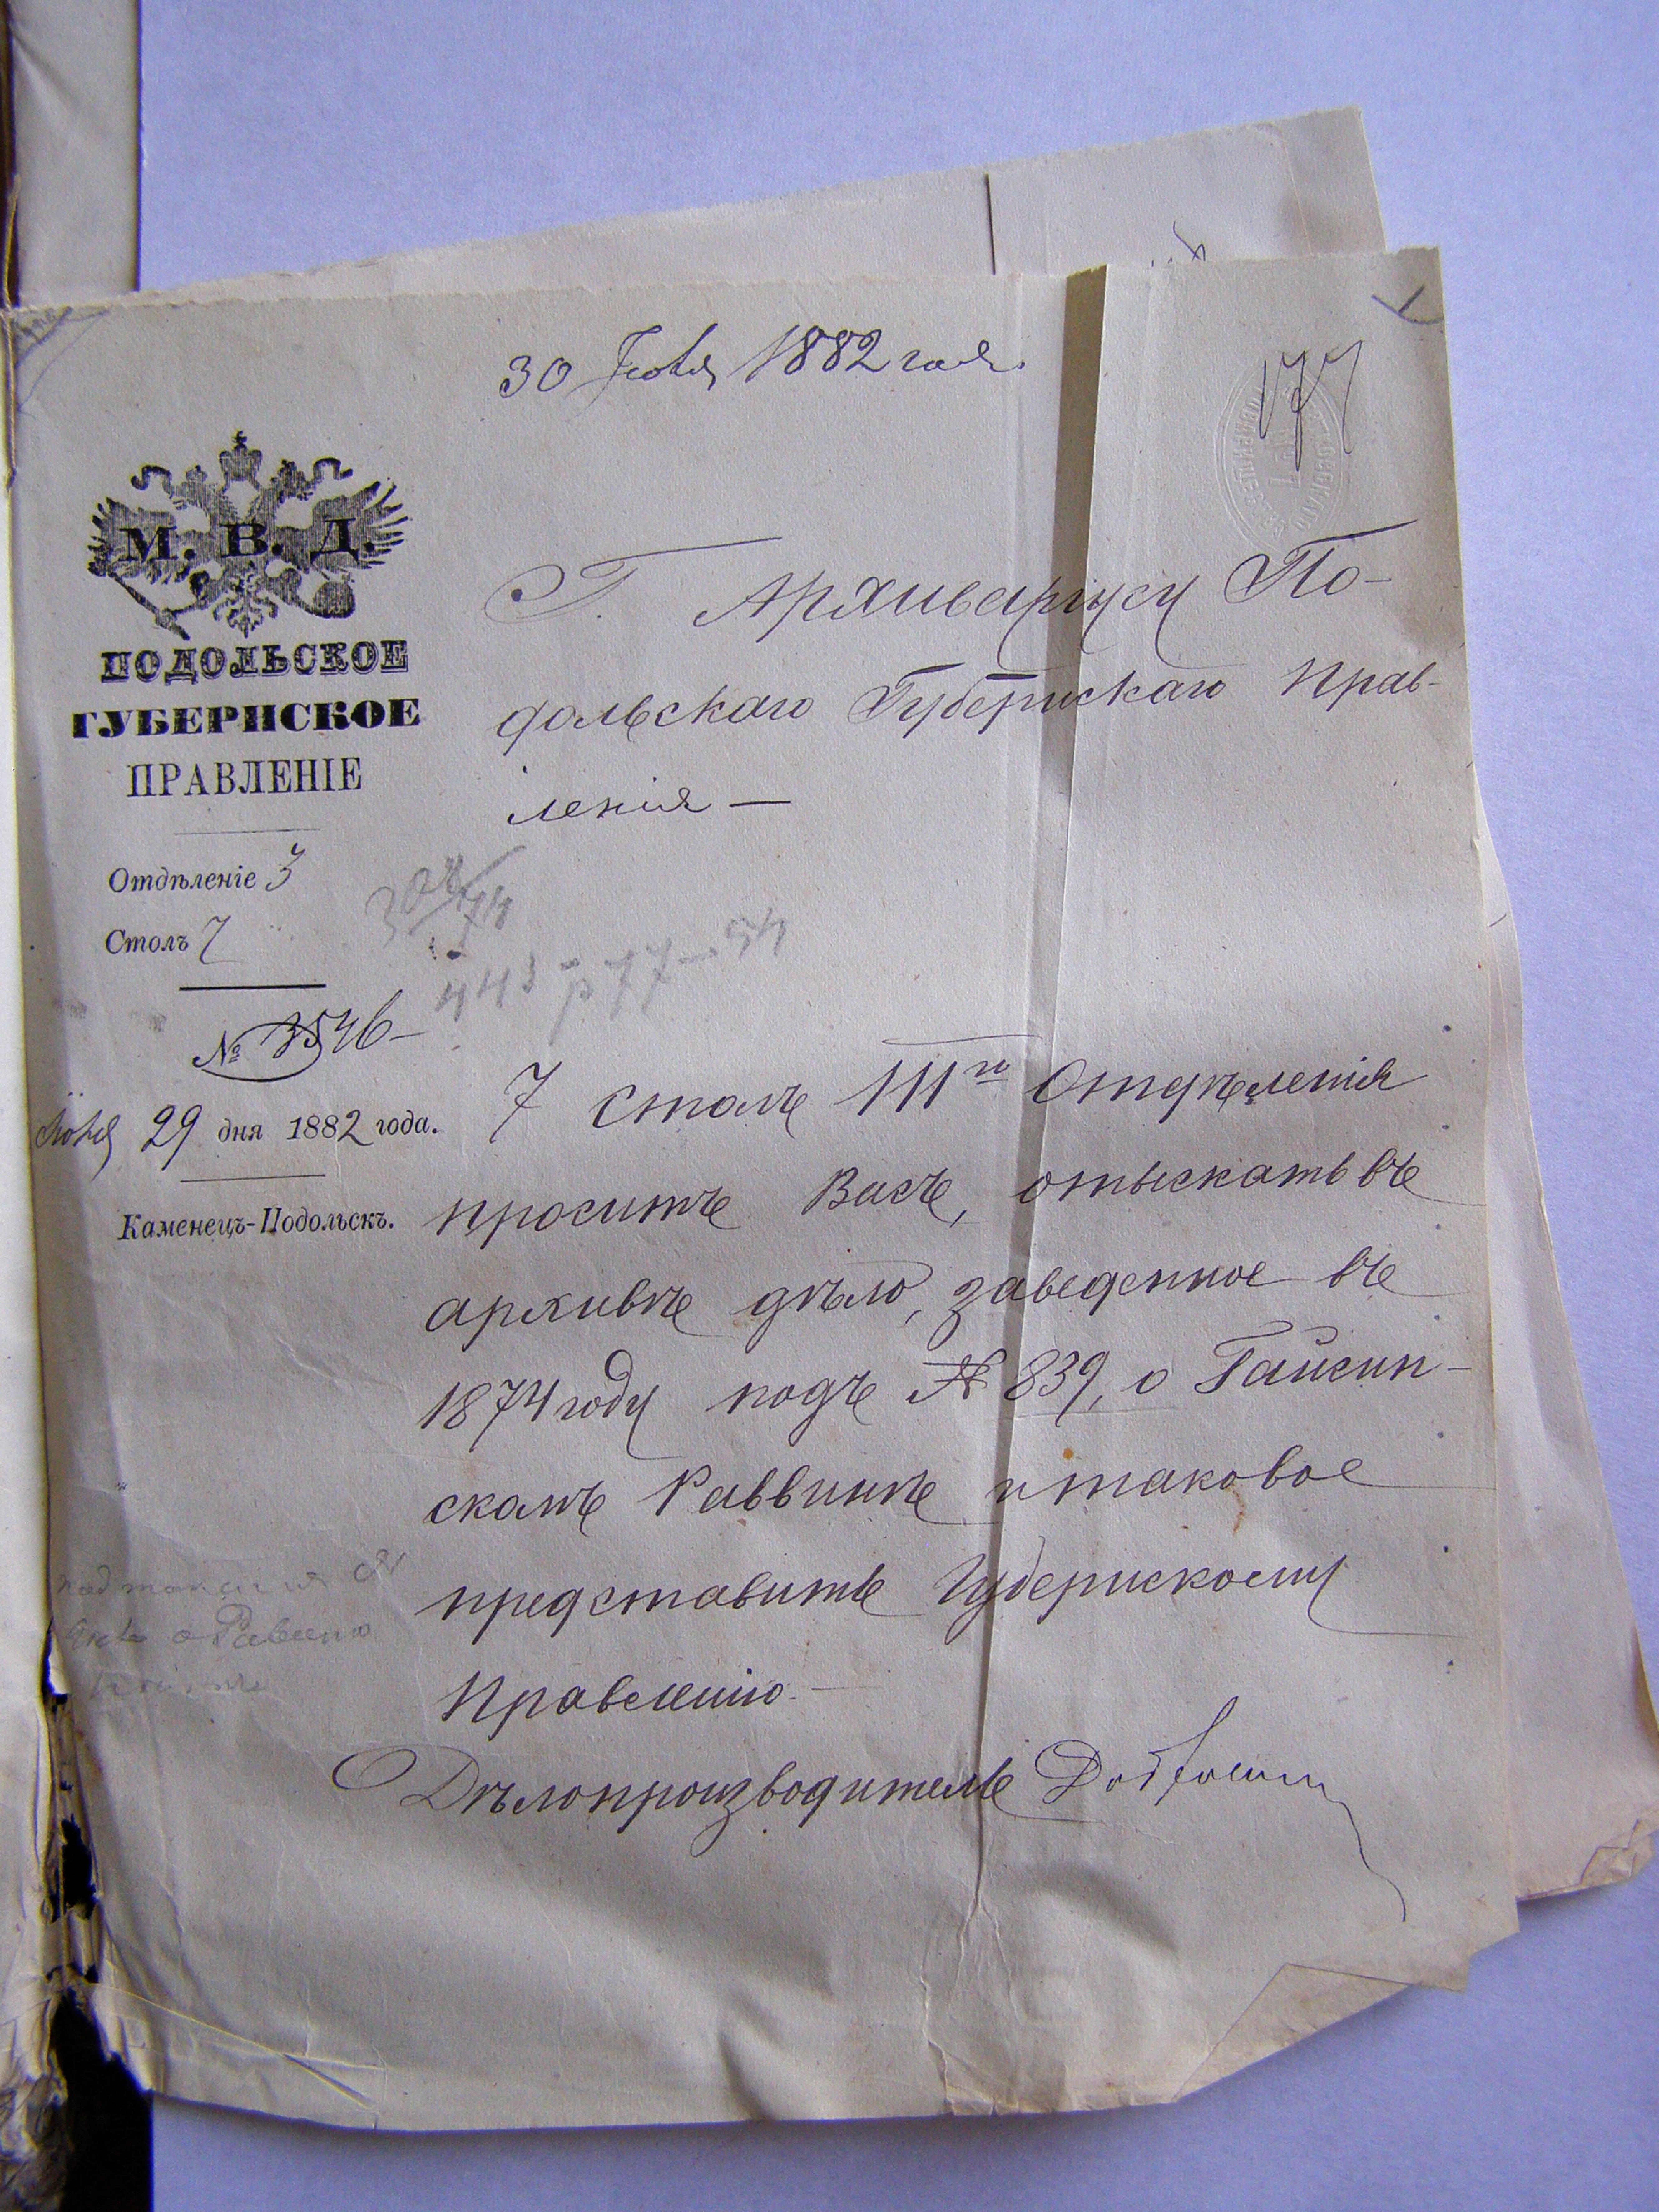 30 Юля 1882 года.
177
М. В. Д.
ПОДОЛЬСКОЕ
ГУБЕРНСКОЕ
ПРАВЛЕНІЕ
Отдѣленіе 3
Столъ 7
№ 3546
29 дня 1882 года.
Каменецъ-Подольскъ.
Г. Архиваріусу По-
дольскаго Губернскаго Прав-
ленія —
7 столъ III го Отдѣленія
проситъ Васъ, отыскать въ
архивѣ дѣло, заведенное въ
1874 году подъ № 839, о Гайсин-
скомъ Раввинѣ и таковое
представить Губернскому
Правленію. —
Дѣлопроизводитель